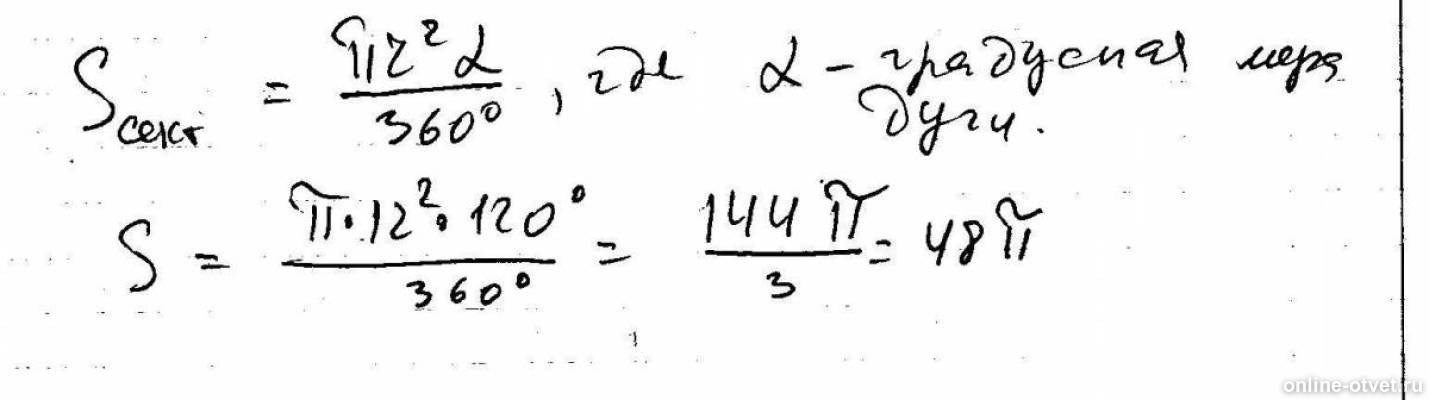 Sсект = πr²α / 360°, где α - градусная мера дуги.
S = π·12²·120° / 360° = 144π / 3 = 48π
online-otvet.ru